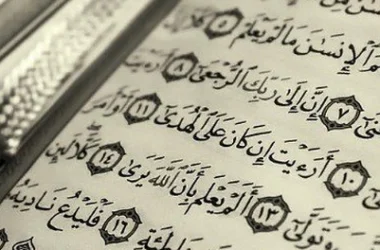 ٱلْإِنسَٰنَ مَا لَمْ يَعْلَمْ ٥ كَلَّا
٧ إِنَّ إِلَىٰ رَبِّكَ ٱلرُّجْعَىٰٓ ٨ أَرَءَيْتَ
١٠ أَرَءَيْتَ إِن كَانَ عَلَى ٱلْهُدَىٰٓ ١١ أَوْ أَمَرَ
وَتَوَلَّىٰٓ ١٣ أَلَمْ يَعْلَم بِأَنَّ ٱللَّهَ يَرَىٰ ١٤ كَلَّا لَئِن
١٦ فَلْيَدْعُ نَادِيَهُۥ